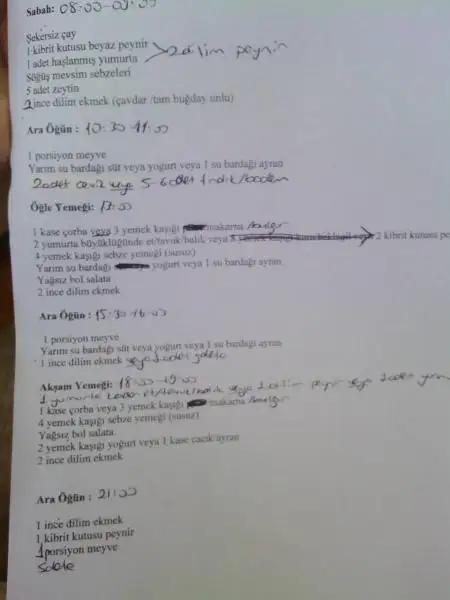 Sabah: 08:00-09:00
Şekersiz çay
1 kibrit kutusu beyaz peynir
2 dilim peynir
1 adet haşlanmış yumurta
Söğüş mevsim sebzeleri
5 adet zeytin
2 ince dilim ekmek (çavdar /tam buğday unlu)
Ara Öğün : 10:30-11:00
1 porsiyon meyve
Yarım su bardağı süt veya yogurt veya 1 su bardağı ayran
2 adet ceviz veya 5-6 adet fındık/badem
Öğle Yemeği: 13:00
1 kase çorba veya 3 yemek kaşığı makarna /bulgur
2 yumurta büyüklüğünde et/tavuk/balık veya 8 yemek kaşığı kuru baklagil veya 2 kibrit kutusu pe
4 yemek kaşığı sebze yemeği (susuz)
Yarım su bardağı yogurt veya 1 su bardağı ayran
Yağsız bol salata
2 ince dilim ekmek
Ara Öğün : 15:30-16:00
1 porsiyon meyve
Yarım su bardağı süt veya yogurt veya 1 su bardağı ayran
1 ince dilim ekmek veya 2 adet
Akşam Yemeği: 18:00-19:00
1 yumurta kadar et/tavuk/balık veya 2 dilim peynir veya 1 adet yum
1 kase çorba veya 3 yemek kaşığı makarna /bulgur
4 yemek kaşığı sebze yemeği (susuz)
Yağsız bol salata
2 yemek kaşığı yoğurt veya 1 kase cacık ayran
2 ince dilim ekmek
Ara Öğün : 21:00
1 ince dilim ekmek
1 kibrit kutusu peynir
1 porsiyon meyve